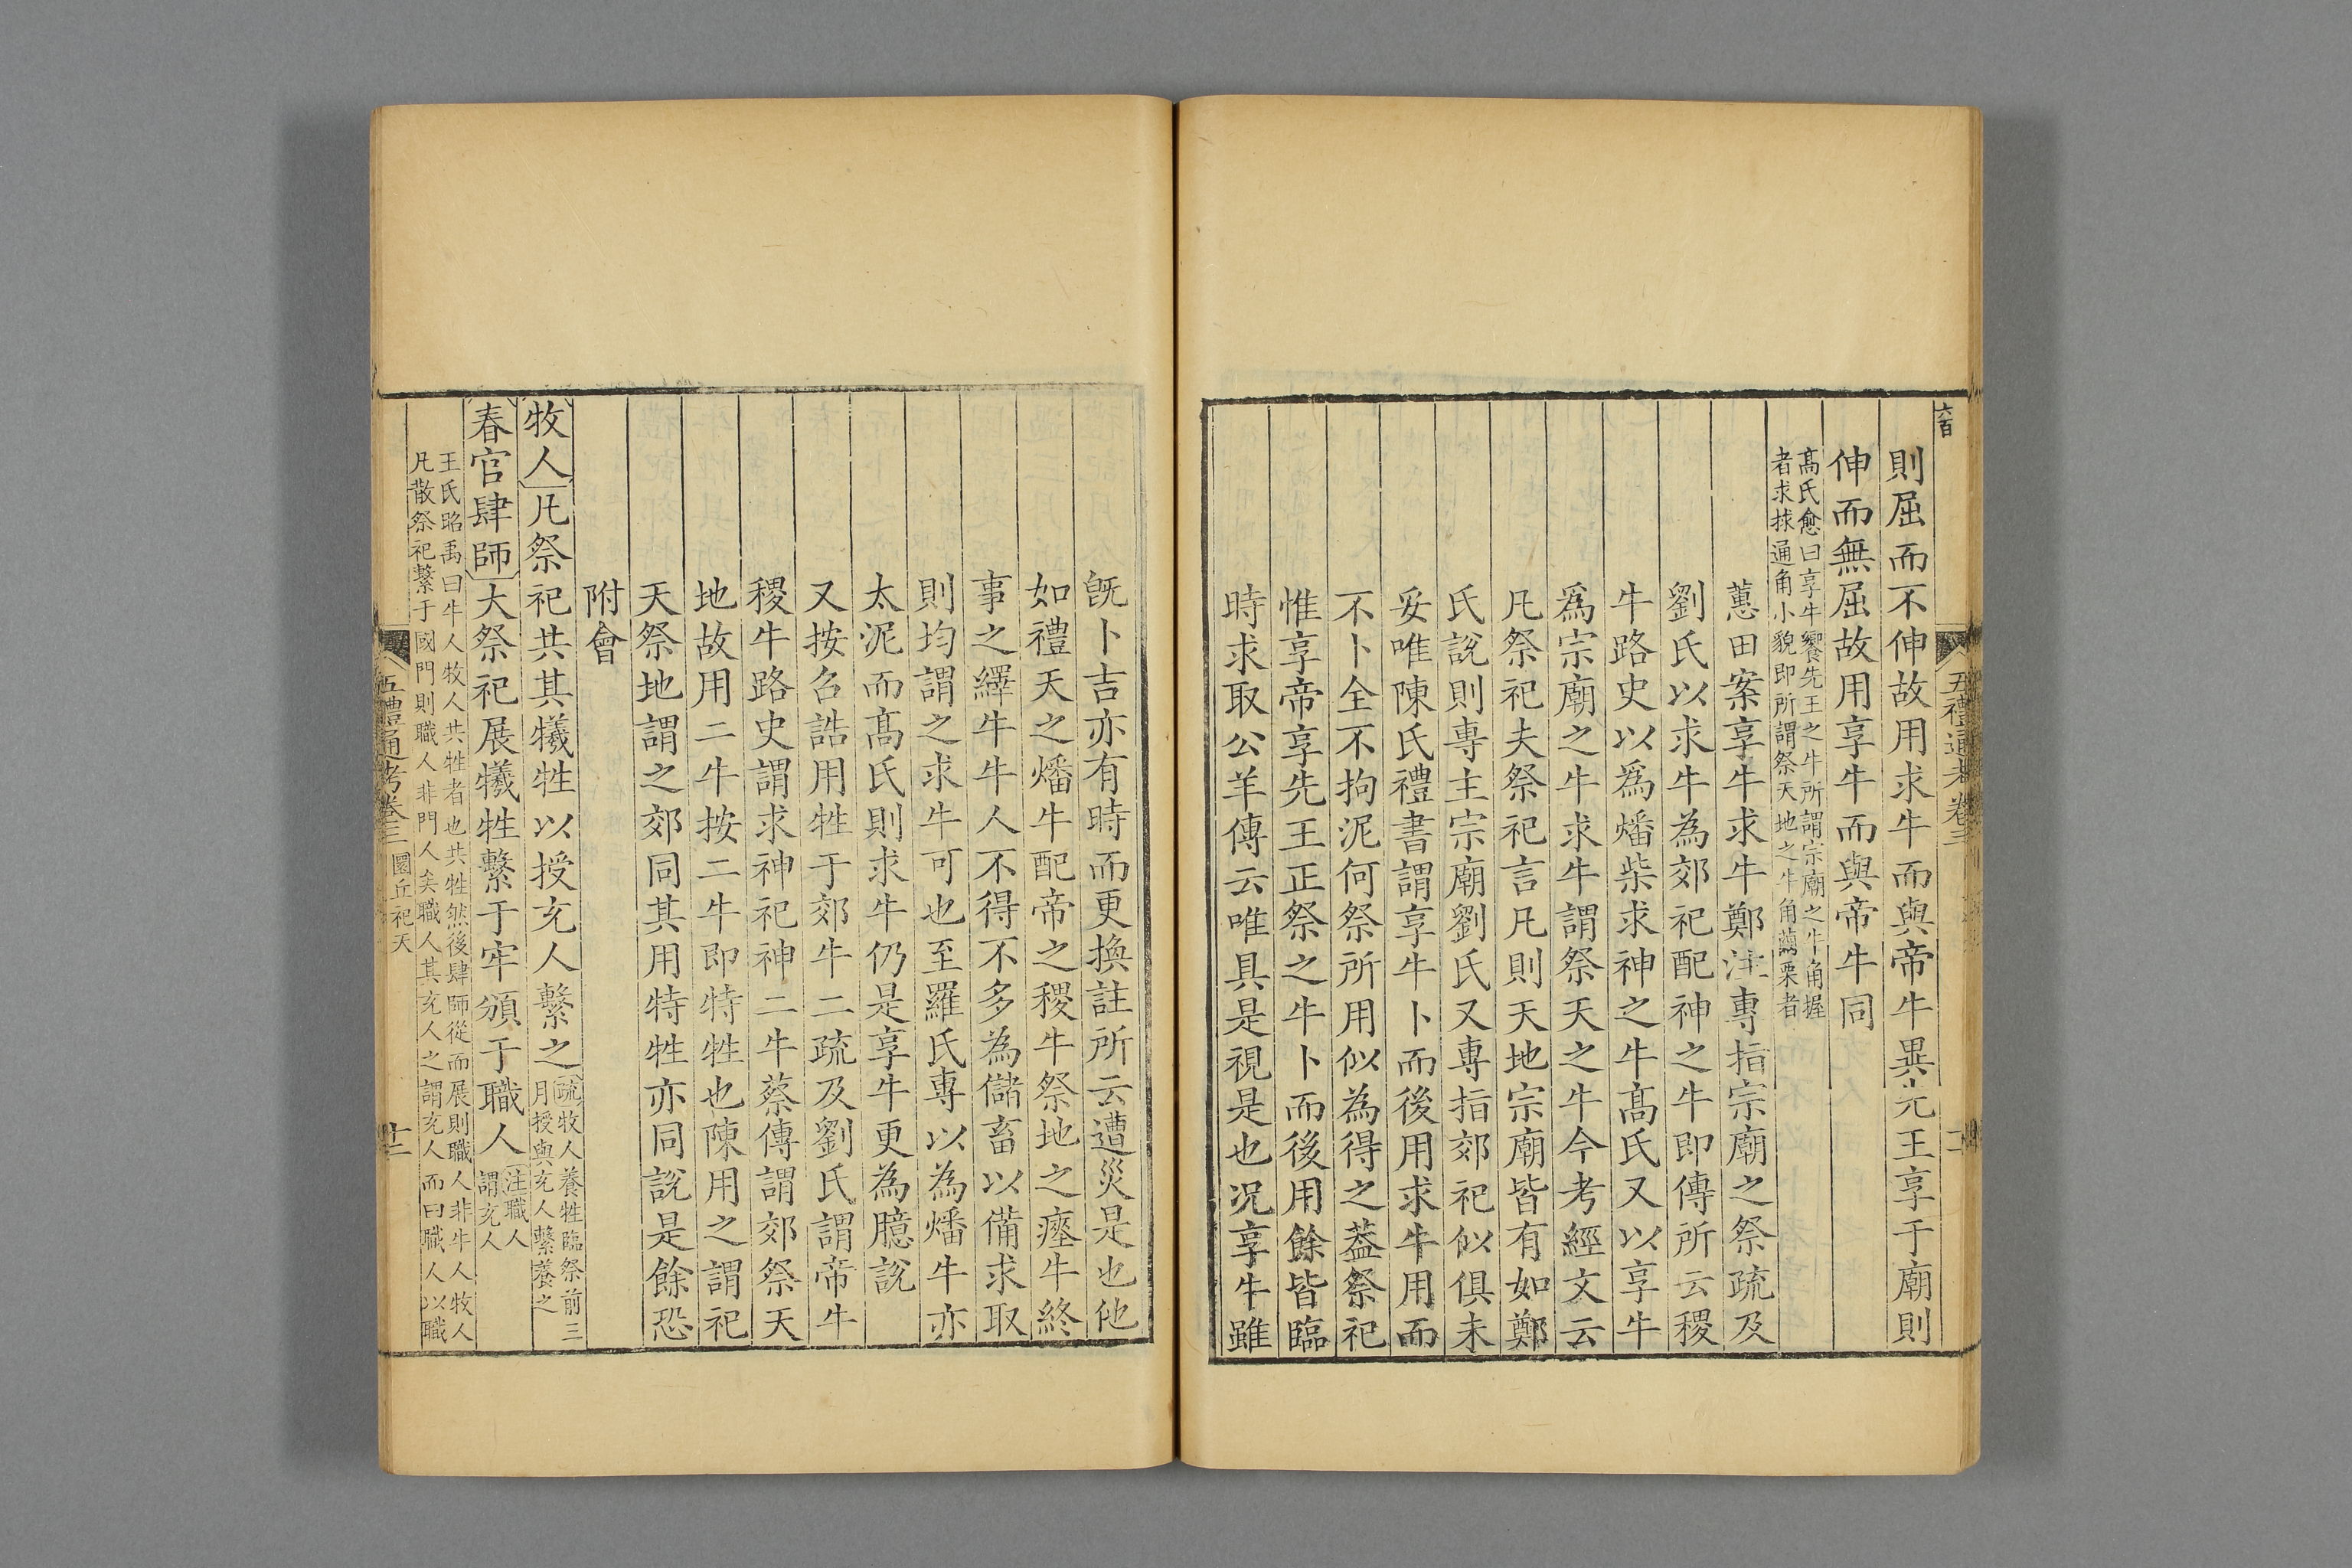 則屈而不伸故用求牛而與帝牛異先王享于廟則
伸而無屈故用享牛而與帝牛同
高氏愈曰享牛饗先王之牛所謂宗廟之牛角握
者求捄通角小貌即所謂祭天地之牛角繭栗者
蕙田案享牛求牛鄭注專指宗廟之祭疏及
劉氏以求牛為郊祀配神之牛即傳所云稷
牛路史以爲燔柴求神之牛高氏又以享牛
爲宗廟之牛求牛謂祭天之牛今考經文云
凡祭祀夫祭祀言凡則天地宗廟皆有如鄭
氏說則專主宗廟劉氏又專指郊祀似俱未
妥唯陳氏禮書謂享牛卜而後用求牛用而
不卜全不拘泥何祭所用似為得之葢祭祀
惟享帝享先王正祭之牛卜而後用餘皆臨
時求取公羊傳云唯具是視是也况享牛雖
五禮通考卷三
既卜吉亦有時而更換註所云遭災是也他
如禮天之燔牛配帝之稷牛祭地之瘞牛終
事之繹牛牛人不得不多為儲畜以備求取
則均謂之求牛可也至羅氏專以為燔牛亦
太泥而高氏則求牛仍是享牛更為臆說
又按召誥用牲于郊牛二疏及劉氏謂帝牛
稷牛路史謂求神祀神二牛蔡傳謂郊祭天
地故用二牛按二牛即特牲也陳用之謂祀
天祭地謂之郊同其用特牲亦同說是餘恐
附會
牧人凡祭祀共其犧牲以授充人繫之疏牧人養牲臨祭前三
月授與充人繫養之
春官肆師大祭祀展犧牲繫于牢頒于職人注職人
謂充人
王氏昭禹曰牛人牧人共牲者也共牲然後肆師從而展則職人非牛人牧人
凡散祭祀繫于國門則職人非門人矣職人其充人之謂充人而曰職人以職
五禮通考卷三 圜丘祀天